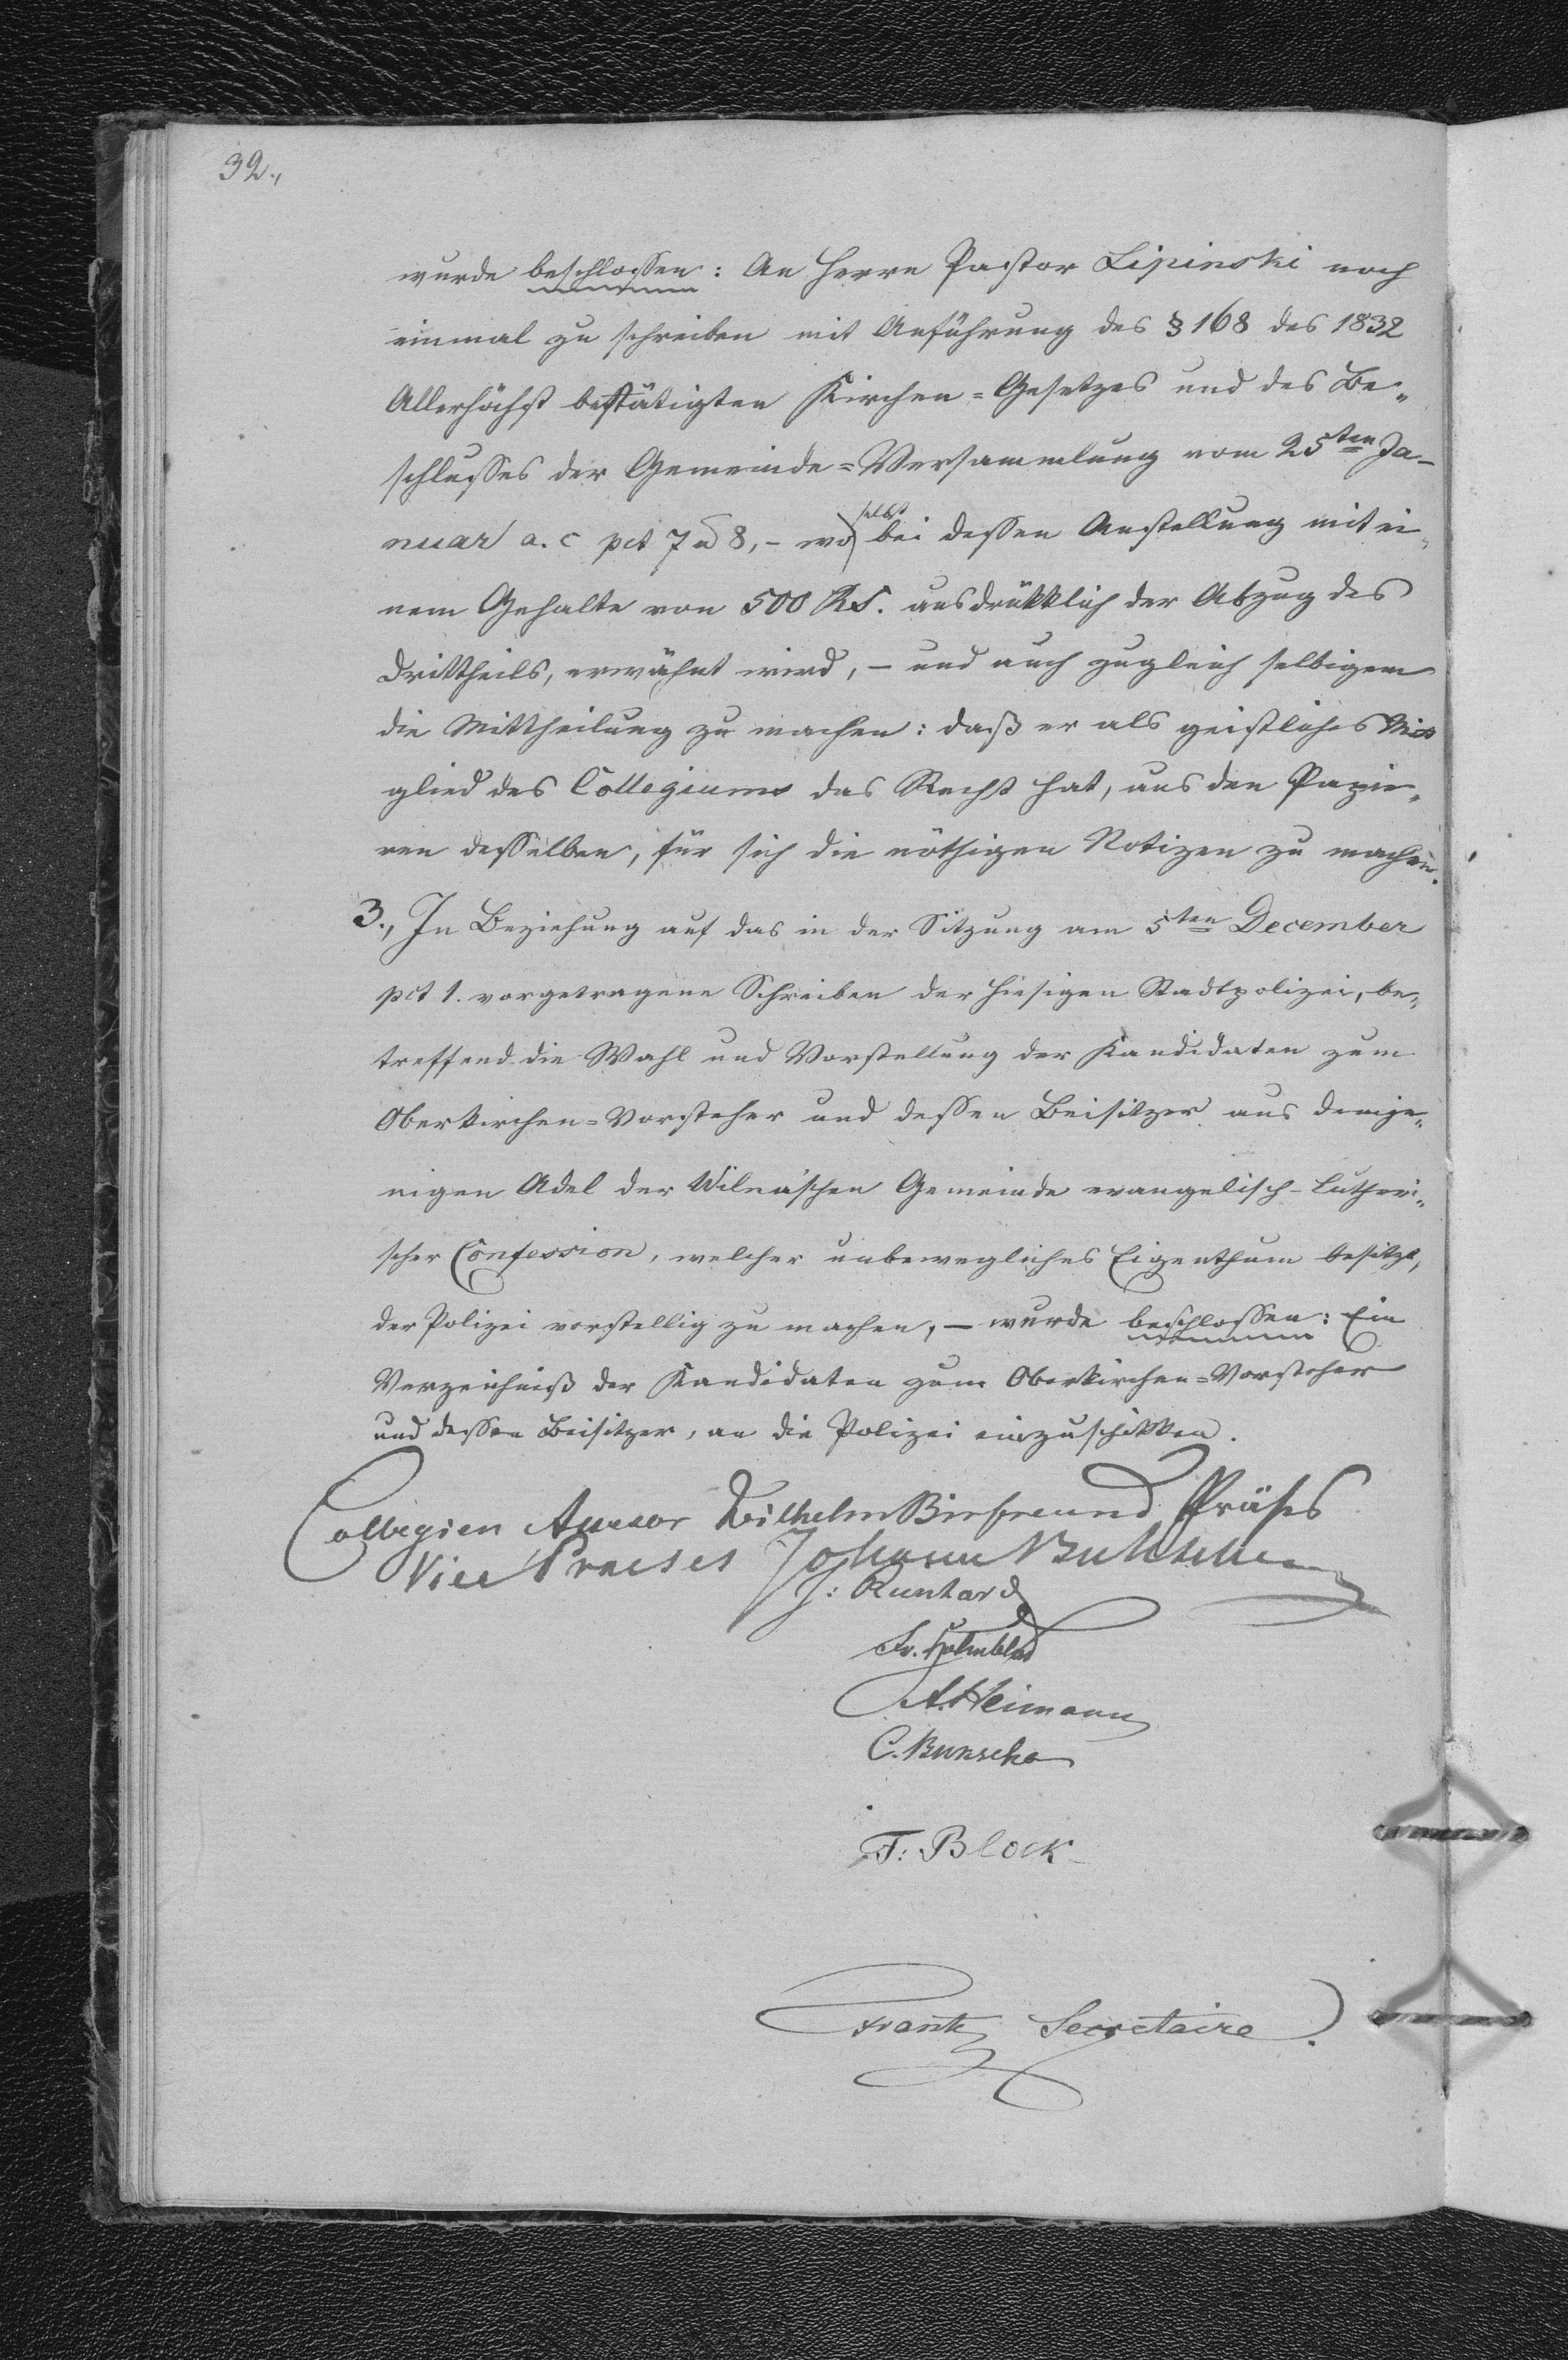 32.,
wurde beschlossen: An Herrn Pastor Lipinski noch
einmal zu schreiben mit Anführung des § 168 des 1832
Allerhöchst bestätigten Kirchen=Gesetzes und des Be„
schlusses der Gemeinde=Versammlung vom 25ten Ja-
nuar a. c pct 7 u 8, - wo selbst bei dessen Anstellung mit ei„
nem Gehalte von 500 RS. ausdrükklich der Abzug des
Drittheils, erwähnt wird, - und auch zugleich selbigem
die Mittheilung zu machen: daß er als geistliches Mit
glied des Collegiums das Recht hat, aus den Papie„
ren desselben, für sich die nöthigen Notizen zu machen.
3., In Beziehung auf das in der Sitzung am 5ten December
pct 1. vorgetragene Schreiben der hiesigen Stadtpolizei, be„
treffend die Wahl und Vorstellung der Kandidaten zum
Oberkirchen=Vorsteher und dessen Beisitzer aus demje„
nigen Adel der Wilnaschen Gemeinde evangelisch-Lutheri„
scher Confession, welcher unbewegliches Eigenthum besitzt,
der Polizei vorstellig zu machen, - wurde beschlossen: Ein
Verzeichniß der Kandidaten zum Oberkirchen=Vorsteher
und dessen Beisitzer, an die Polizei einzuschikken.
Collegien Assesor Wilhelm Präses
Vice Praeses Johann
J:
Fr. Holmblad
A. Heimann
C. Bunscha
F: Block
Frank Secretaire.